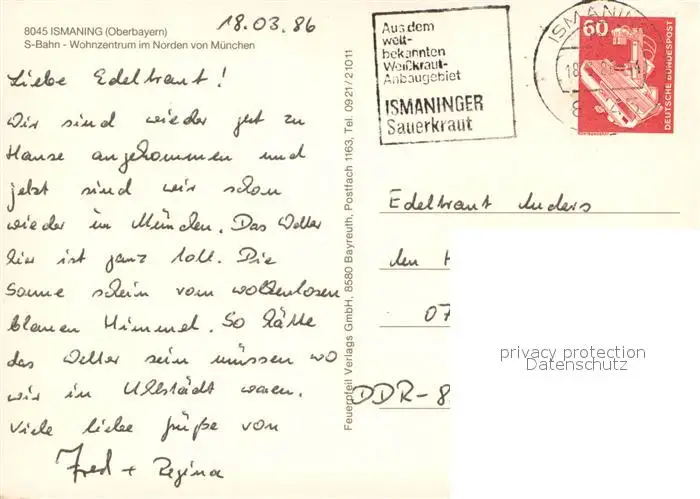 18.03.86
8045 ISMANING (Oberbayern)
S-Bahn - Wohnzentrum im Norden von München
Liebe Edeltraut!
Wir sind wieder gut zu
Hause angekommen und
jetzt sind wir schon
wieder in München. Das Wetter
hier ist ganz toll. Die
Sonne schein vom wolkenlosen
blauen Himmel. So hätte
das Wetter sein müssen wo
wir in Uhlstädt waren.
Viele liebe Grüße von
Fred + Regina
Feuerpfeil Verlags GmbH, 8580 Bayreuth, Postfach 1163, Tel. 0921/21011
Aus dem
welt-
bekannten
Weißkraut-
Anbaugebiet
ISMANINGER
Sauerkraut
ISMANING
18
60
DEUTSCHE BUNDESPOST
Edeltraut Anders
den H
07
DDR-8
privacy protection
Datenschutz